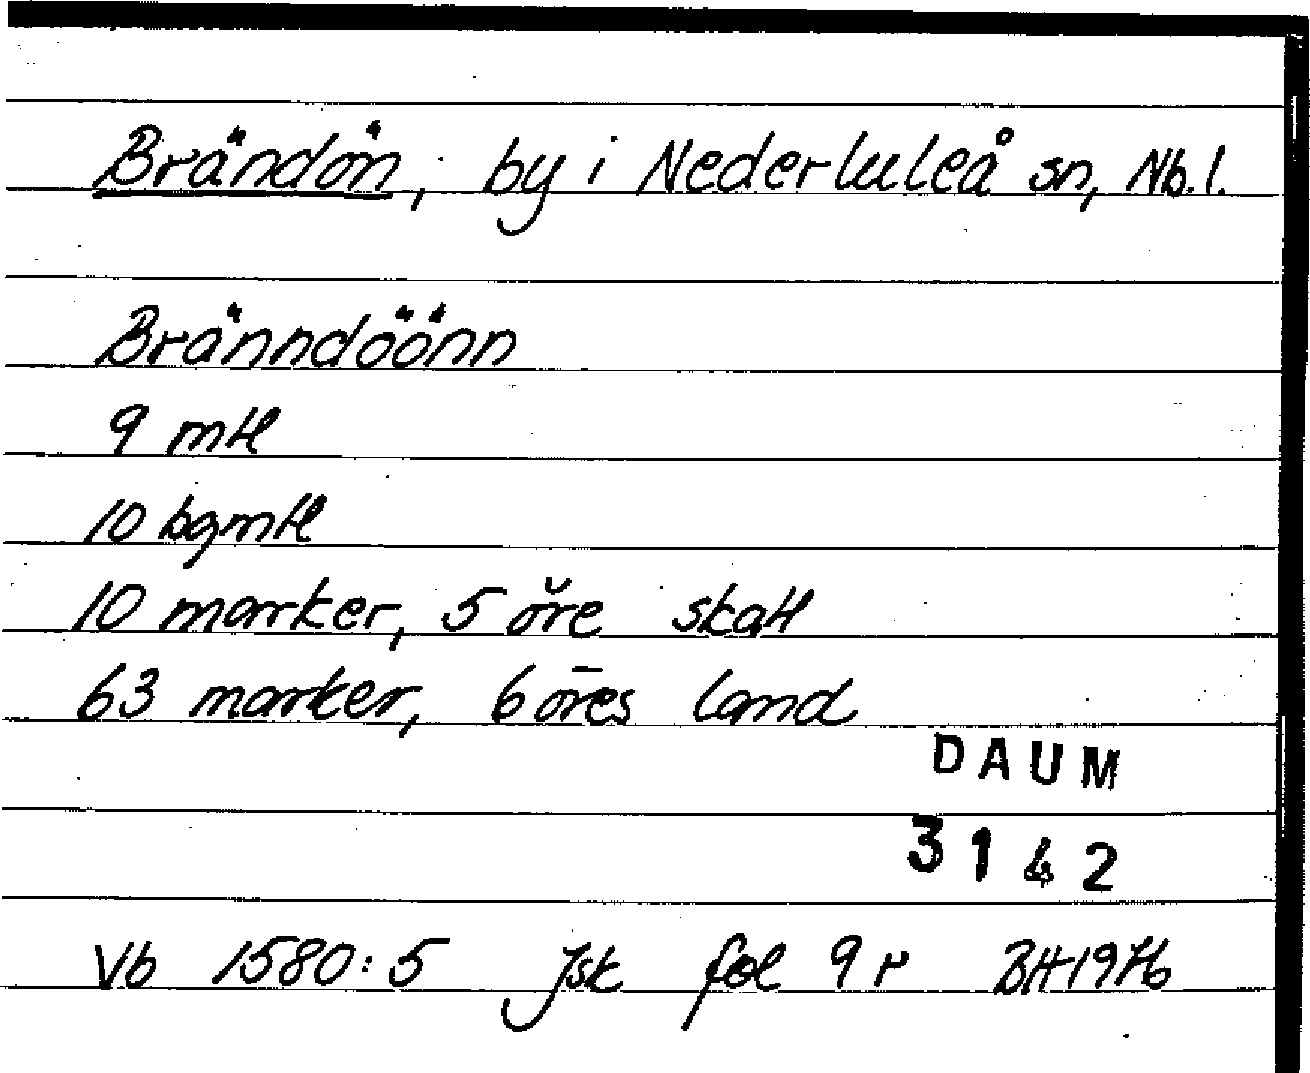 Brändön, by i Nederluleå sn, Nb.l.
Bränndöönn
9 mtl
10 bgmtl
10 marker, 5 öre skatt
63 marker, 6 öres land
DAUM
3142
Vb 1580:5 Jsk fol 9 r BH 1976